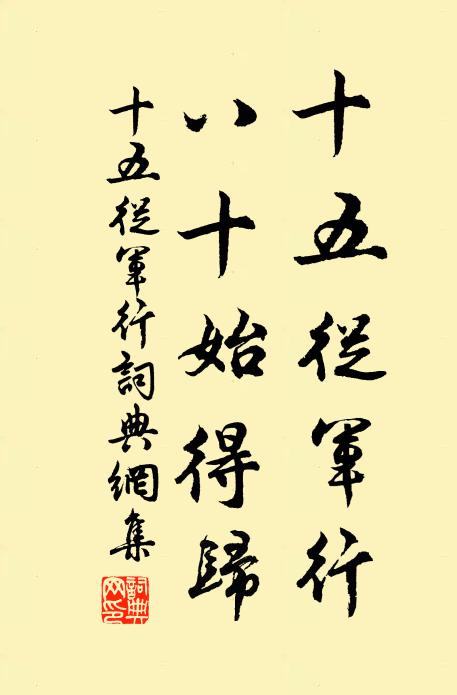 十五從軍行
八十始得歸
十五從軍行詞典網集
詞典網印